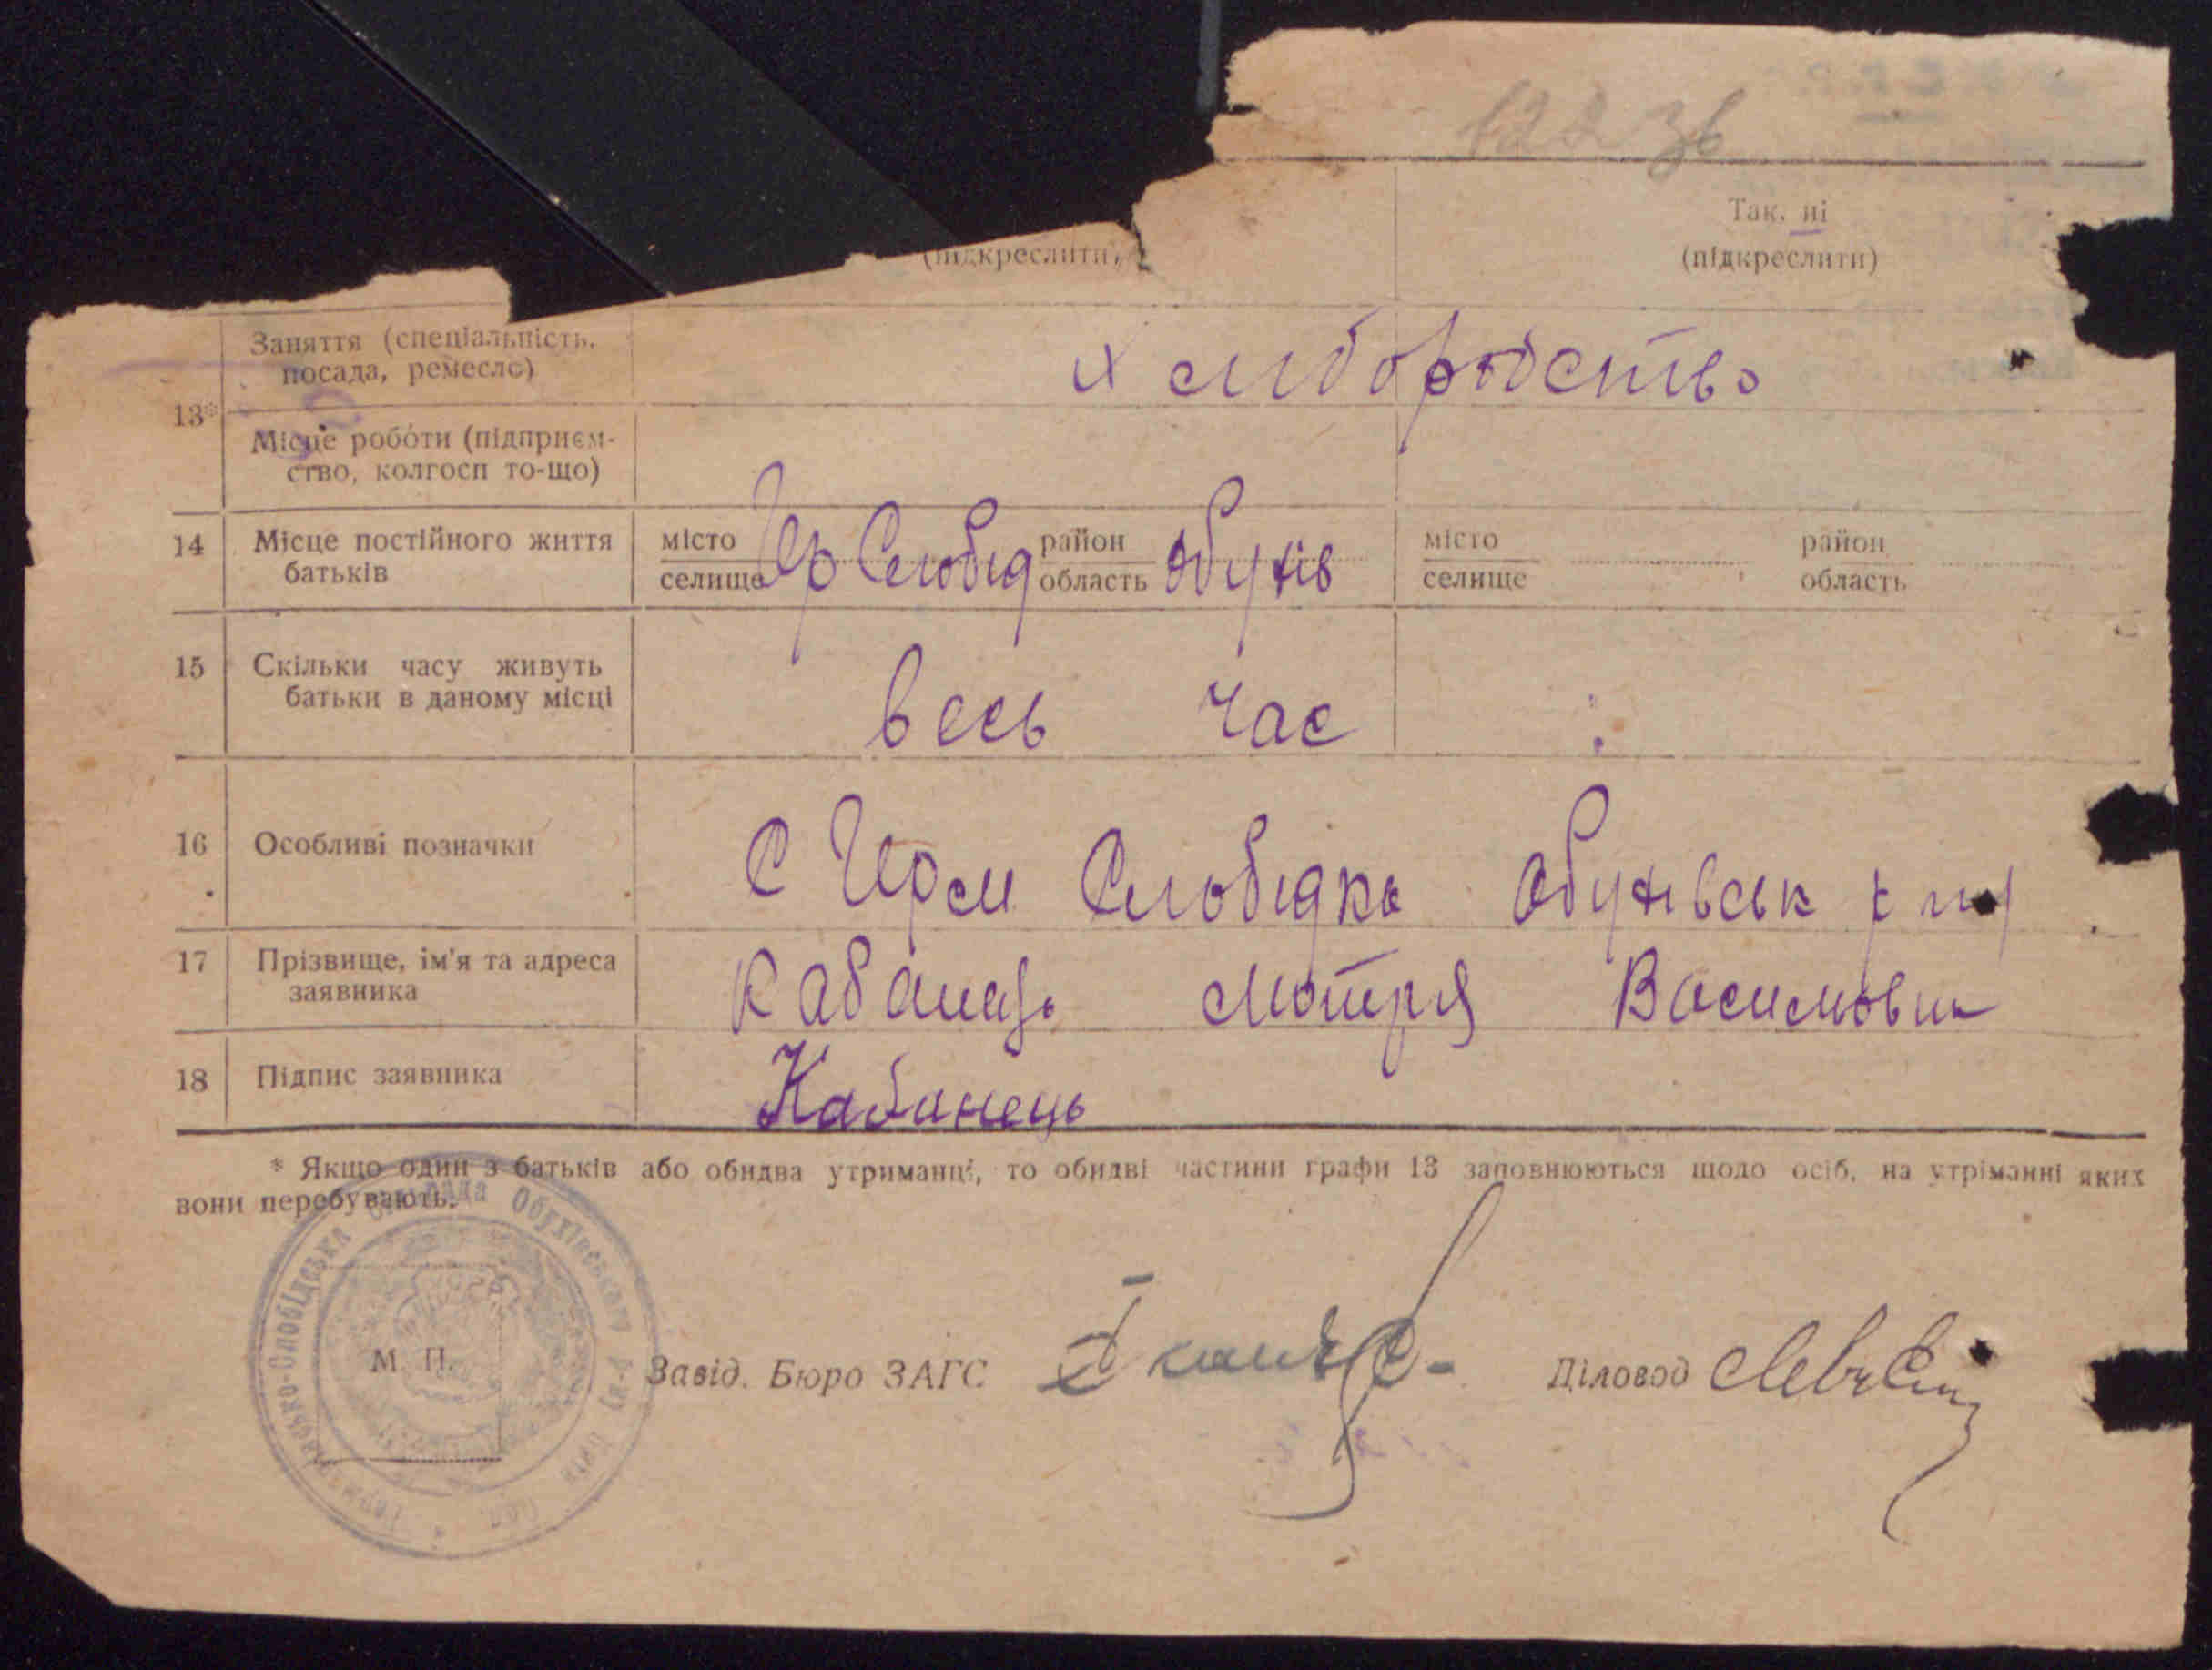 Так, ні
(підкреслити) (підкреслити)
13* Заняття (спеціальність, посада, ремесло) Хлиборобство
Місце роботи (підприєм-
ство, колгосп то-що)
14 Місце постійного життя
батьків
місто селище Гер Слобід район область Обухів місто селище район область
15 Скільки часу живуть
батьки в даному місці
весь час
16 Особливі позначки С Герм Слобідка Обухівськ
17 Прізвище, ім'я та адреса
заявника
Мотря Василовна
18 Підпис заявника Кабанець
* Якщо один з батьків або обидва утриманці, то обидві частини графи 13 заповнюються щодо осіб, на утріманні яких
вони перебувають.
М. П. Завід. Бюро ЗАГС Діловод